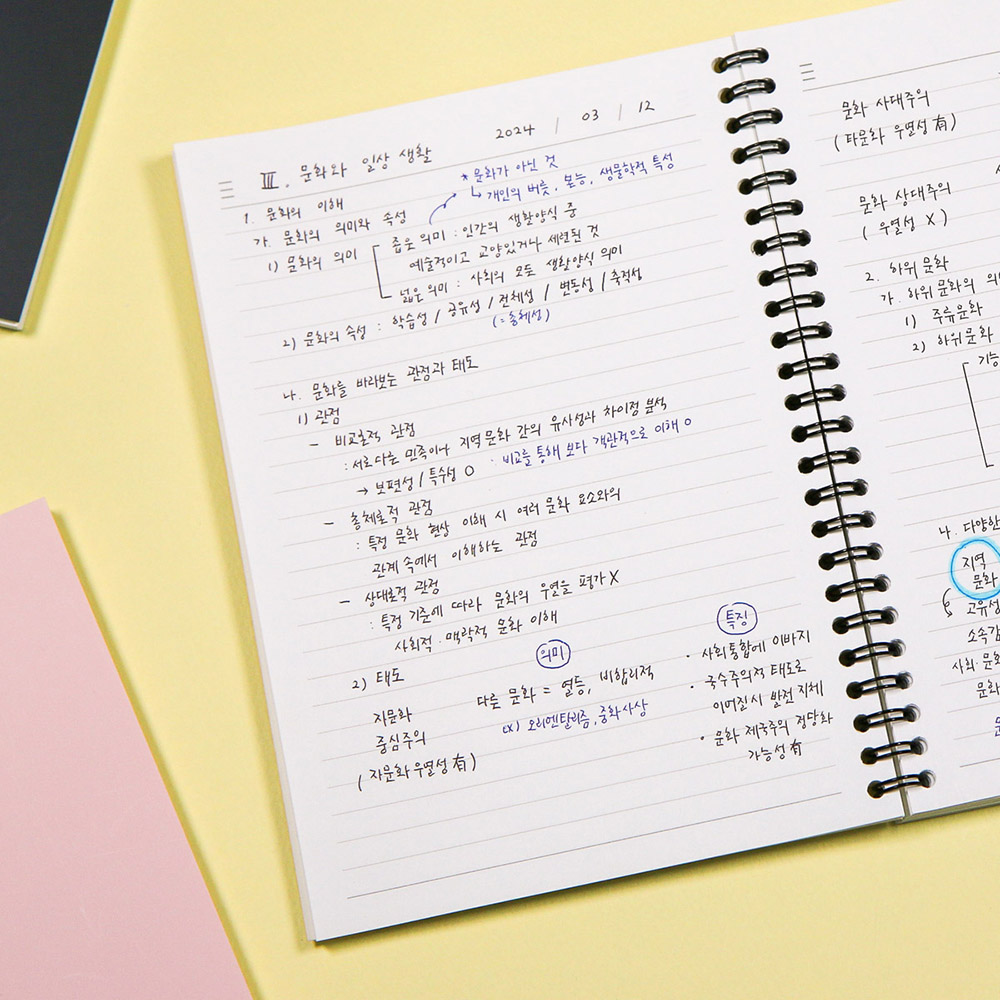 2024 / 03 / 12
Ⅲ. 문화와 일상 생활
* 문화가 아닌 것
↳ 개인의 버릇, 본능, 생물학적 특성
1. 문화의 이해
가. 문화의 의미와 속성
1) 문화의 의미
좁은 의미 : 인간의 생활양식 중
예술적이고 교양있거나 세련된 것
넓은 의미 : 사회의 모든 생활양식 의미
2) 문화의 속성 : 학습성 / 공유성 / 전체성 / 변동성 / 축적성
(= 총체성)
나. 문화를 바라보는 관점과 태도
1) 관점
- 비교론적 관점
: 서로 다른 민족이나 지역 문화 간의 유사성과 차이점 분석
→ 보편성 / 특수성 O : 비교를 통해 보다 객관적으로 이해 O
- 총체론적 관점
: 특정 문화 현상 이해 시 여러 문화 요소와의
관계 속에서 이해하는 관점
- 상대론적 관점
: 특정 기준에 따라 문화의 우열을 평가 X
사회적·맥락적 문화 이해
2) 태도
의미
특징
자문화
중심주의
(자문화 우열성 有)
다른 문화 = 열등, 비합리적
ex) 오리엔탈리즘, 중화사상
· 사회통합에 이바지
· 국수주의적 태도로
이어질시 발전 지체
· 문화 제국주의 정당화
가능성 有
문화 사대주의
(타문화 우열성 有)
문화 상대주의
(우열성 X)
2. 하위 문화
가. 하위 문화의
1) 주류 문화
2) 하위 문화
나. 다양한
지역
문화
고유성
소속감
사회·문화
문화